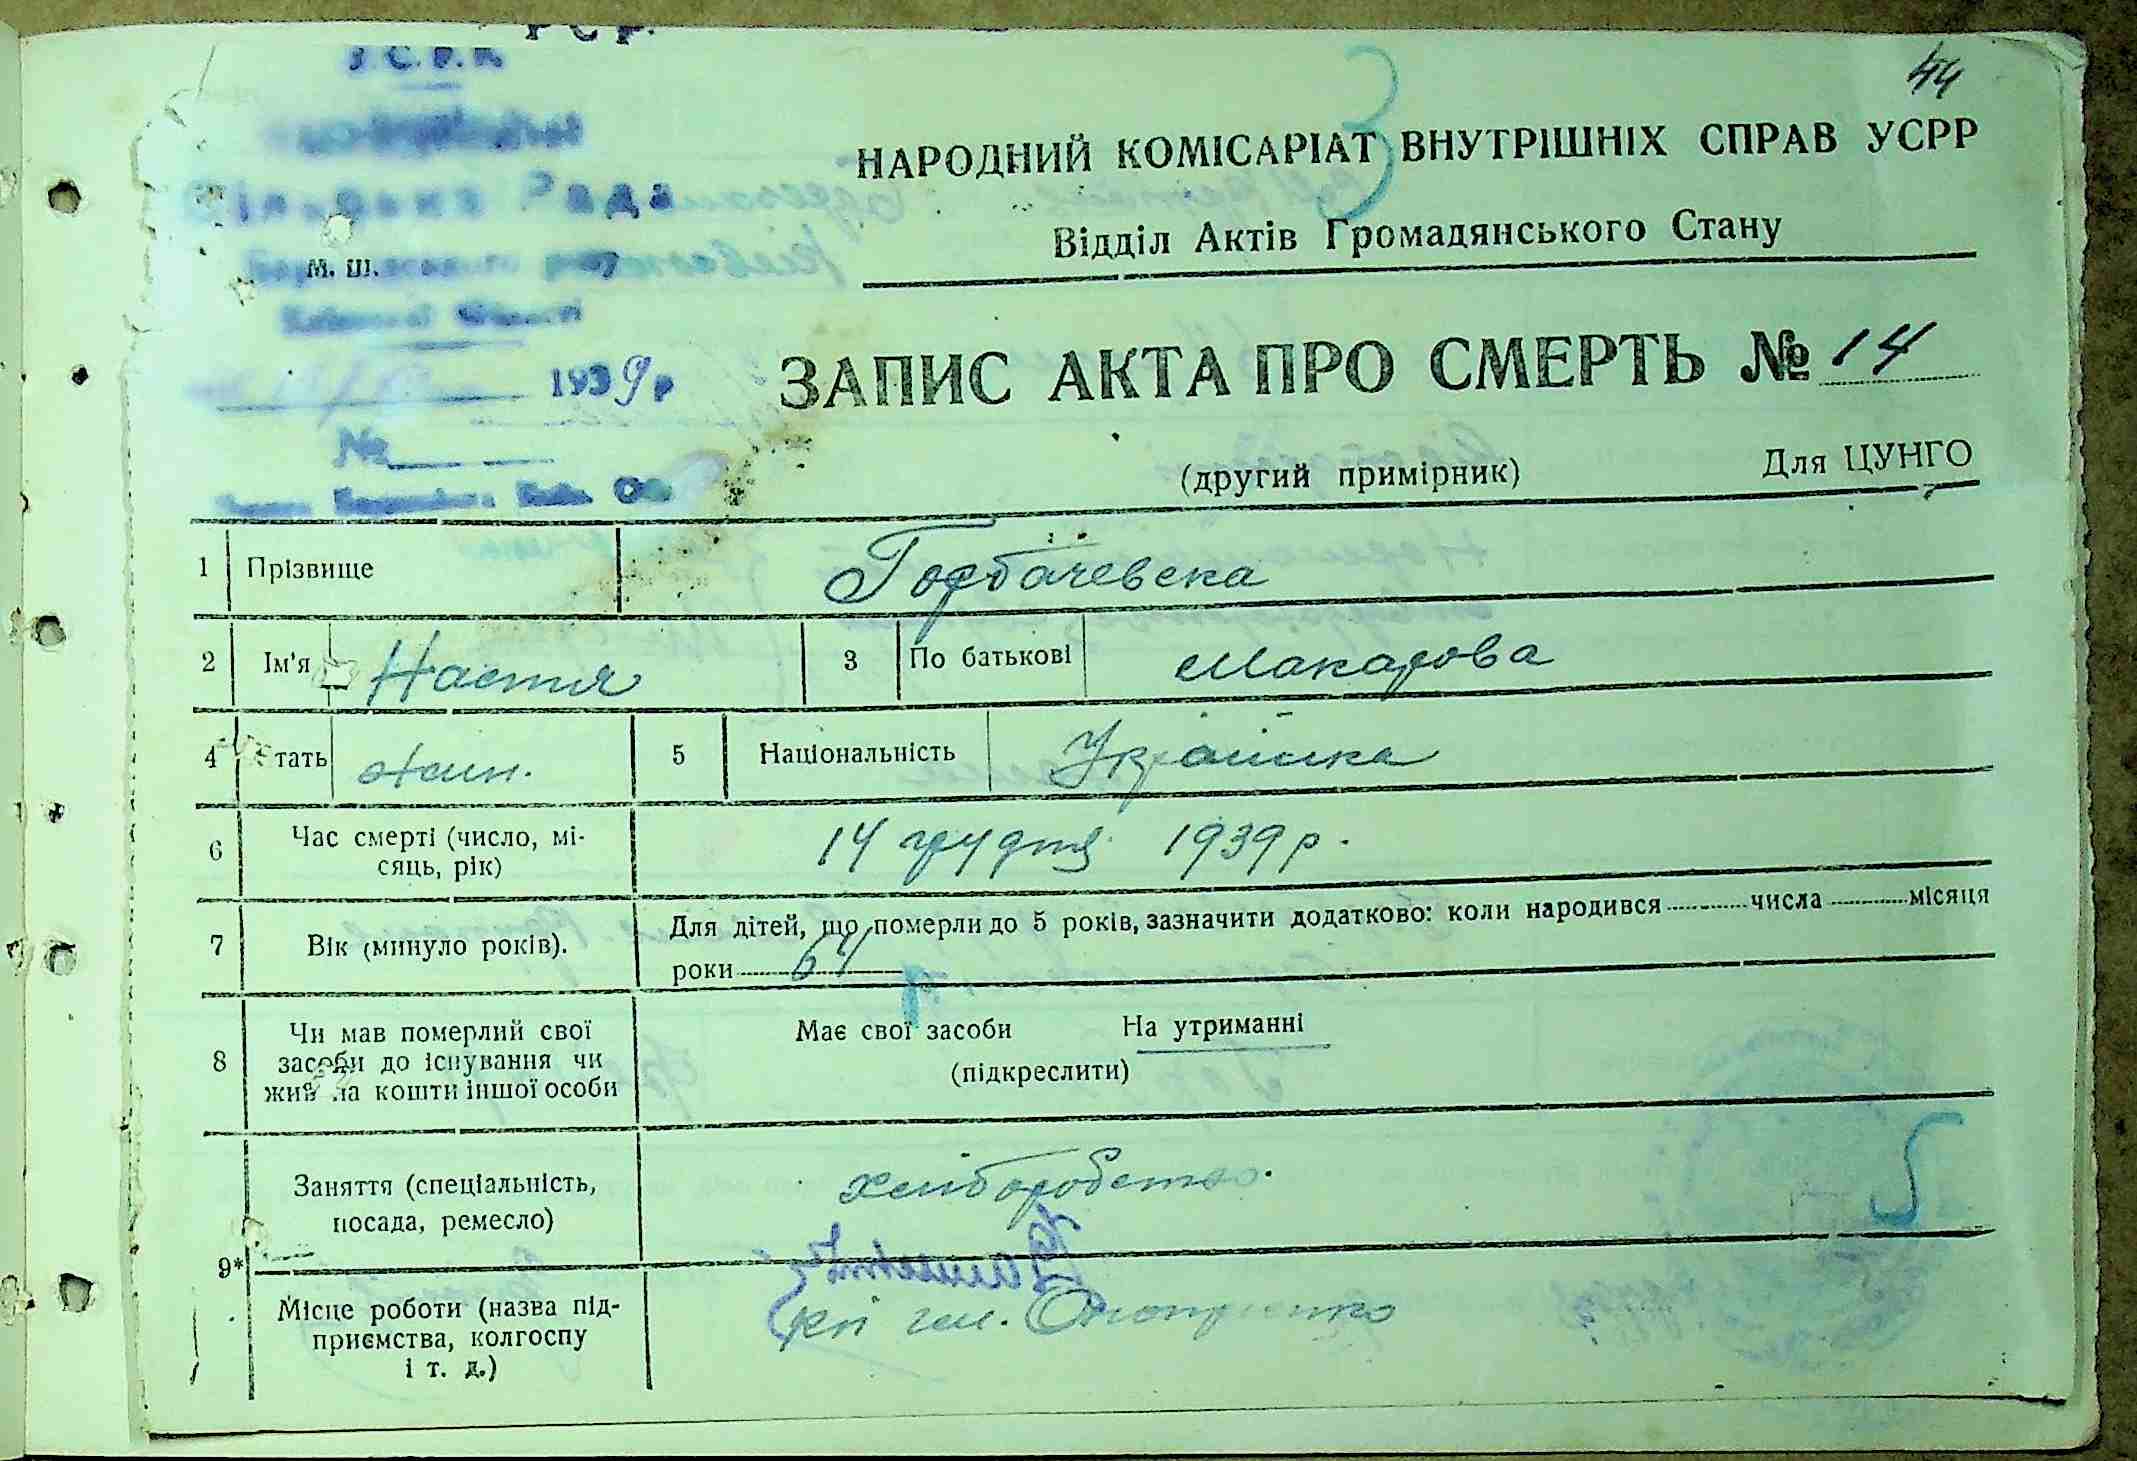 44
У.С.Р.Р.
НАРОДНИЙ КОМІСАРІАТ ВНУТРІШНІХ СПРАВ УСРР
Сільська Рада
Відділ Актів Громадянського Стану
М. Ш. району
Київської області
1939 р
ЗАПИС АКТА ПРО СМЕРТЬ № 14
№
(другий примірник) Для ЦУНГО
1 Прізвище Горбачевска
2 Ім'я Настя 3 По батькові Макарова
4 Стать жін. 5 Національність Українка
6 Час смерті (число, мі-
сяць, рік) 14 грудня 1939 р.
7 Вік (минуло років). Для дітей, що померли до 5 років, зазначити додатково: коли народився числа місяця
роки 64
8 Чи мав померлий свої
засоби до існування чи
жив на кошти іншої особи
Має свої засоби На утриманні
(підкреслити)
9* Заняття (спеціальність,
посада, ремесло) хліборобство.
Місце роботи (назва під-
приємства, колгоспу
і т. д.)
5